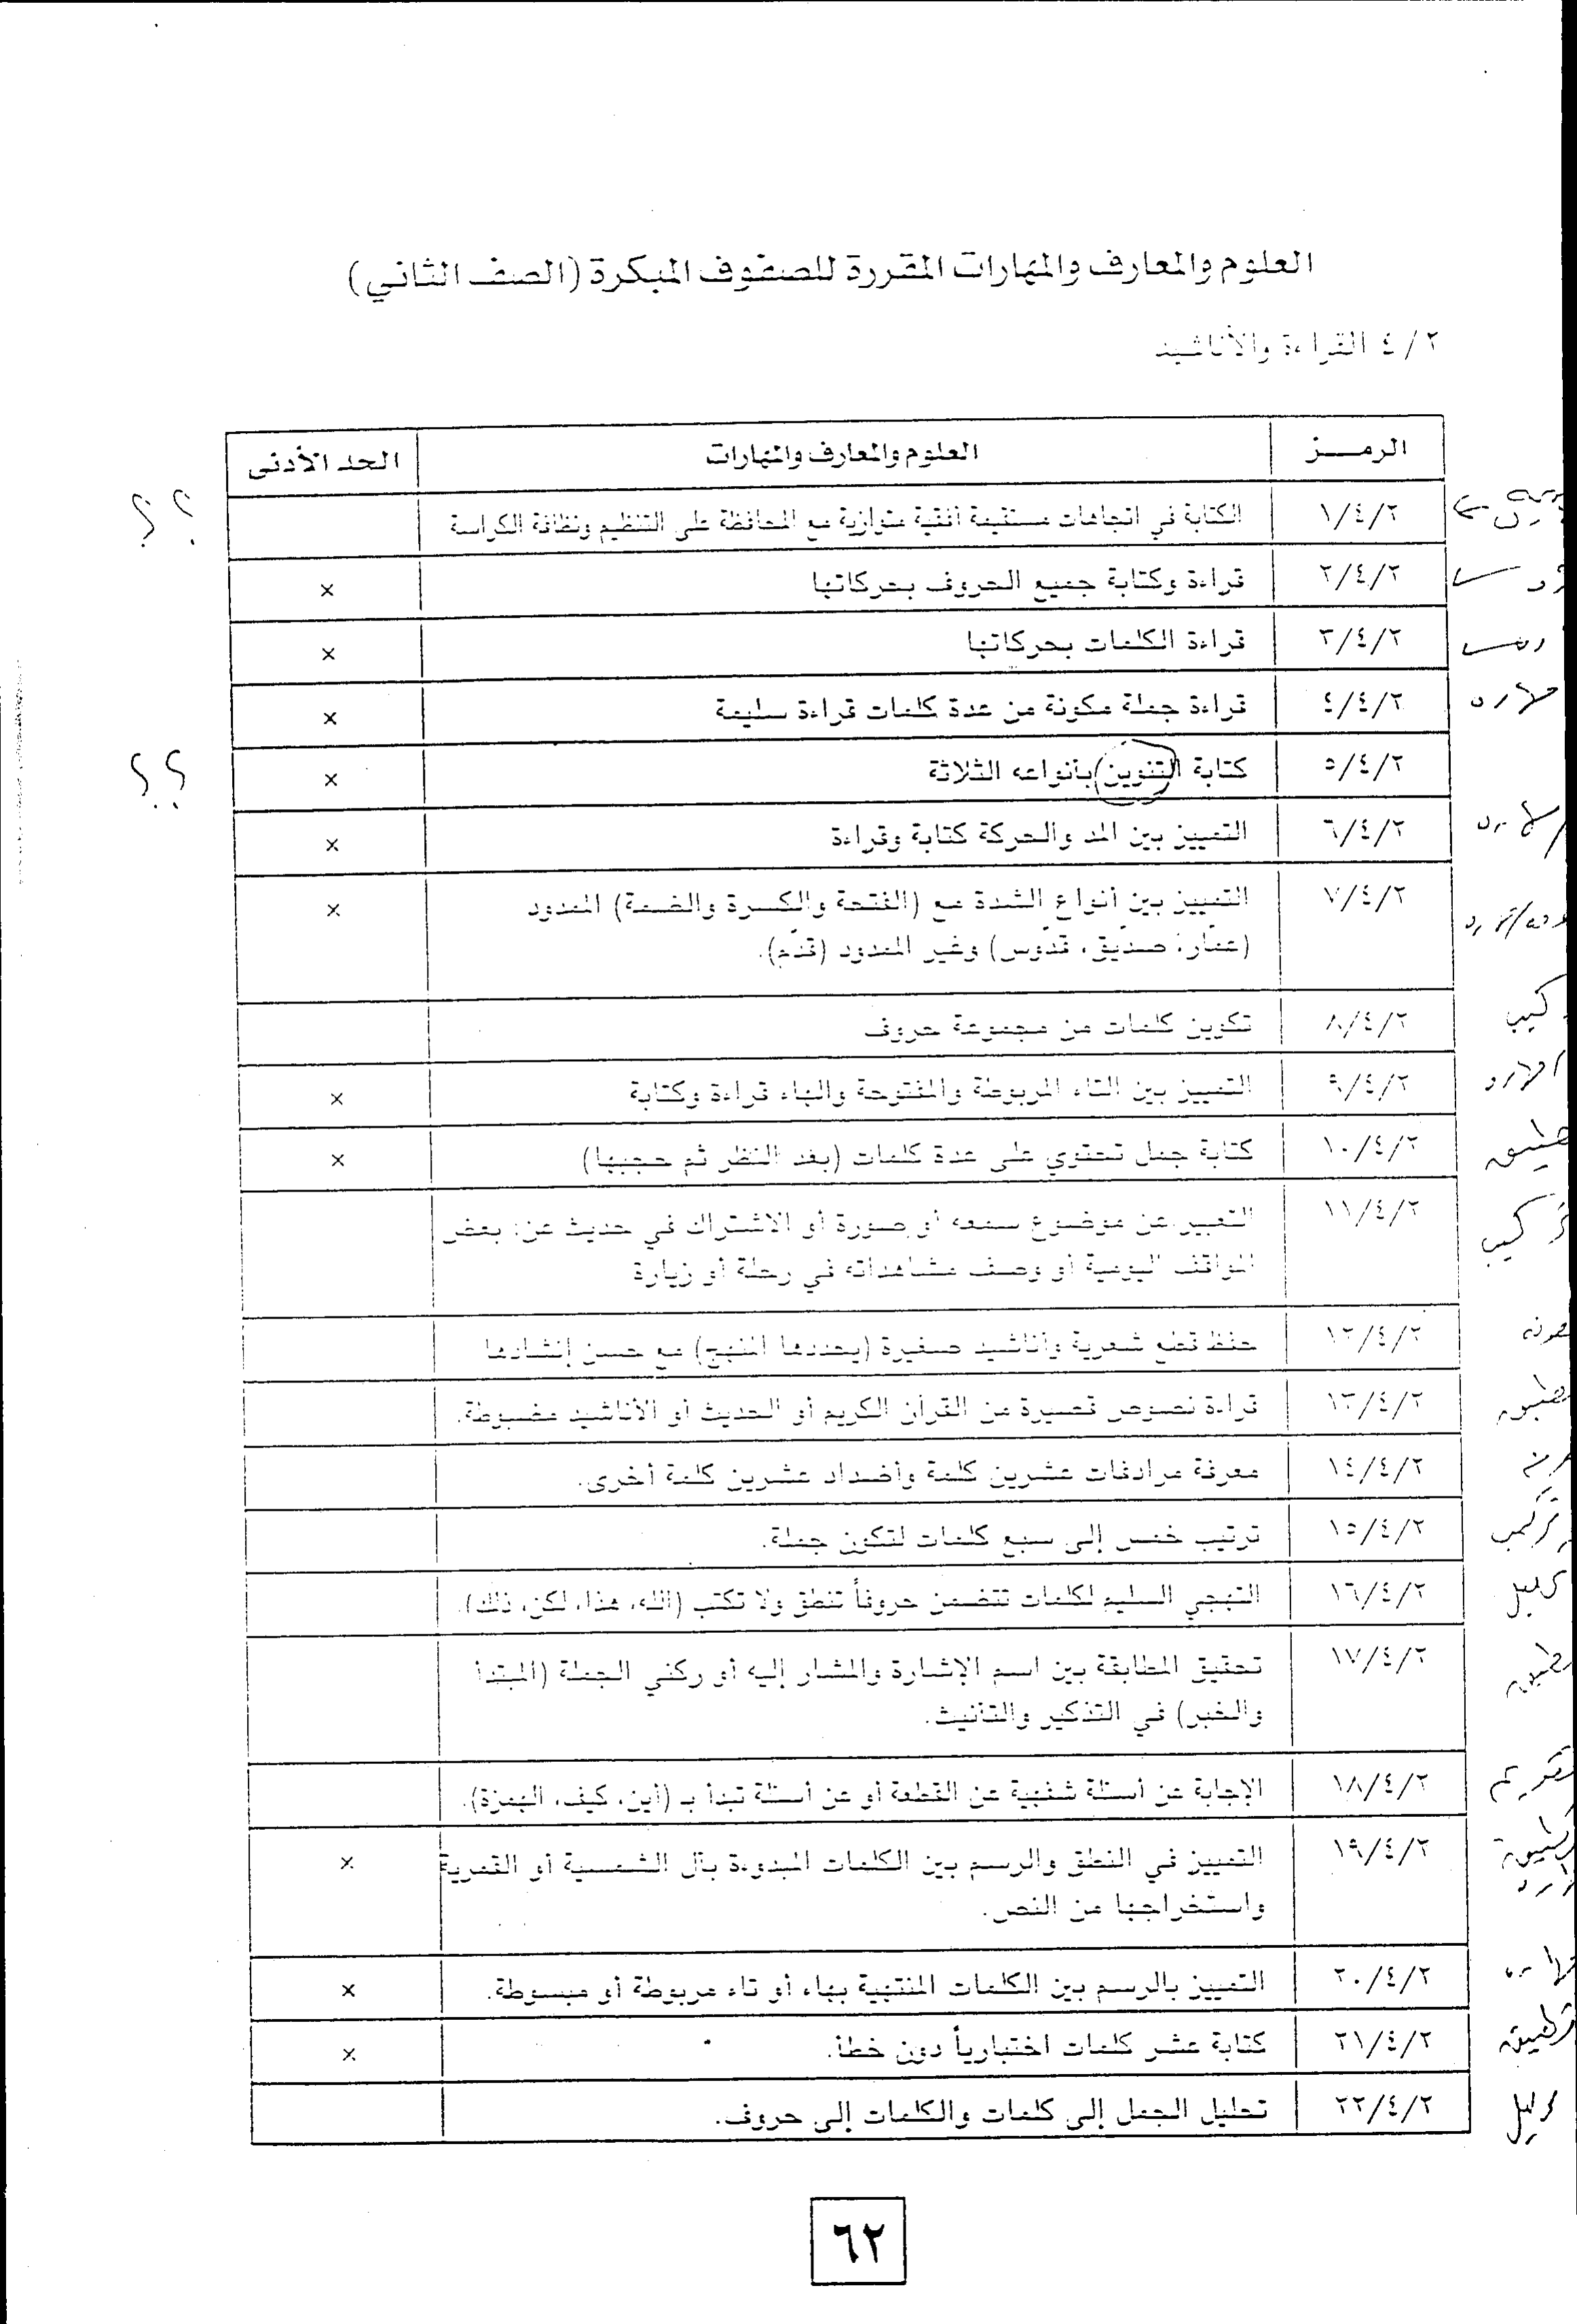 العلوم والمعارف والمهارات المقررة للصفوف المبكرة (الصف الثاني)
٤/٢ القراءة والأناشيد
الرمـــز العلوم والمعارف والمهارات الحد الأدنى
١/٤/٢ الكتابة في اتجاهات مستقيمة أفقية متوازية مع المحافظة على التنظيم ونظافة الكراسة ؟ ؟
٢/٤/٢ قراءة وكتابة جميع الحروف بحركاتها ×
٣/٤/٢ قراءة الكلمات بحركاتها ×
٤/٤/٢ قراءة جملة مكونة من عدة كلمات قراءة سليمة ×
٥/٤/٢ كتابة التنوين بأنواعه الثلاثة × ؟ ؟
٦/٤/٢ التمييز بين المد والحركة كتابة وقراءة ×
٧/٤/٢ التمييز بين أنواع الشدة مع (الفتحة والكسرة والضمة) الممدود ×
(عمّار، صدّيق، قدّوس) وغير الممدود (قدّم).
٨/٤/٢ تكوين كلمات من مجموعة حروف
٩/٤/٢ التمييز بين التاء المربوطة والمفتوحة والهاء قراءة وكتابة ×
١٠/٤/٢ كتابة جمل تحتوي على عدة كلمات (بعد النظر ثم حجبها) ×
١١/٤/٢ التعبير عن موضوع سمعه أو صورة أو الاشتراك في حديث عن: بعض تركيب
المواقف اليومية أو وصف مشاهداته في رحلة أو زيارة
١٢/٤/٢ حفظ قطع شعرية وأناشيد صغيرة (يحددها المنهج) مع حسن إنشادها
١٣/٤/٢ قراءة نصوص قصيرة من القرآن الكريم أو الحديث أو الأناشيد مضبوطة.
١٤/٤/٢ معرفة مرادفات عشرين كلمة وأضداد عشرين كلمة أخرى.
١٥/٤/٢ ترتيب خمس إلى سبع كلمات لتكون جملة. تركيب
١٦/٤/٢ التهجي السليم لكلمات تتضمن حروفاً تنطق ولا تكتب (الله، هذا، لكن، ذلك).
١٧/٤/٢ تحقيق المطابقة بين اسم الإشارة والمشار إليه أو ركني الجملة (المبتدأ
والخبر) في التذكير والتأنيث.
١٨/٤/٢ الإجابة عن أسئلة شفهية عن القطعة أو عن أسئلة تبدأ بـ (أين، كيف، الهمزة).
١٩/٤/٢ التمييز في النطق والرسم بين الكلمات المبدوءة بأل الشمسية أو القمرية ×
واستخراجها من النص.
٢٠/٤/٢ التمييز بالرسم بين الكلمات المنتهية بهاء أو تاء مربوطة أو مبسوطة. ×
٢١/٤/٢ كتابة عشر كلمات اختبارياً دون خطأ. × تطبيق
٢٢/٤/٢ تحليل الجمل إلى كلمات والكلمات إلى حروف.
٦٢